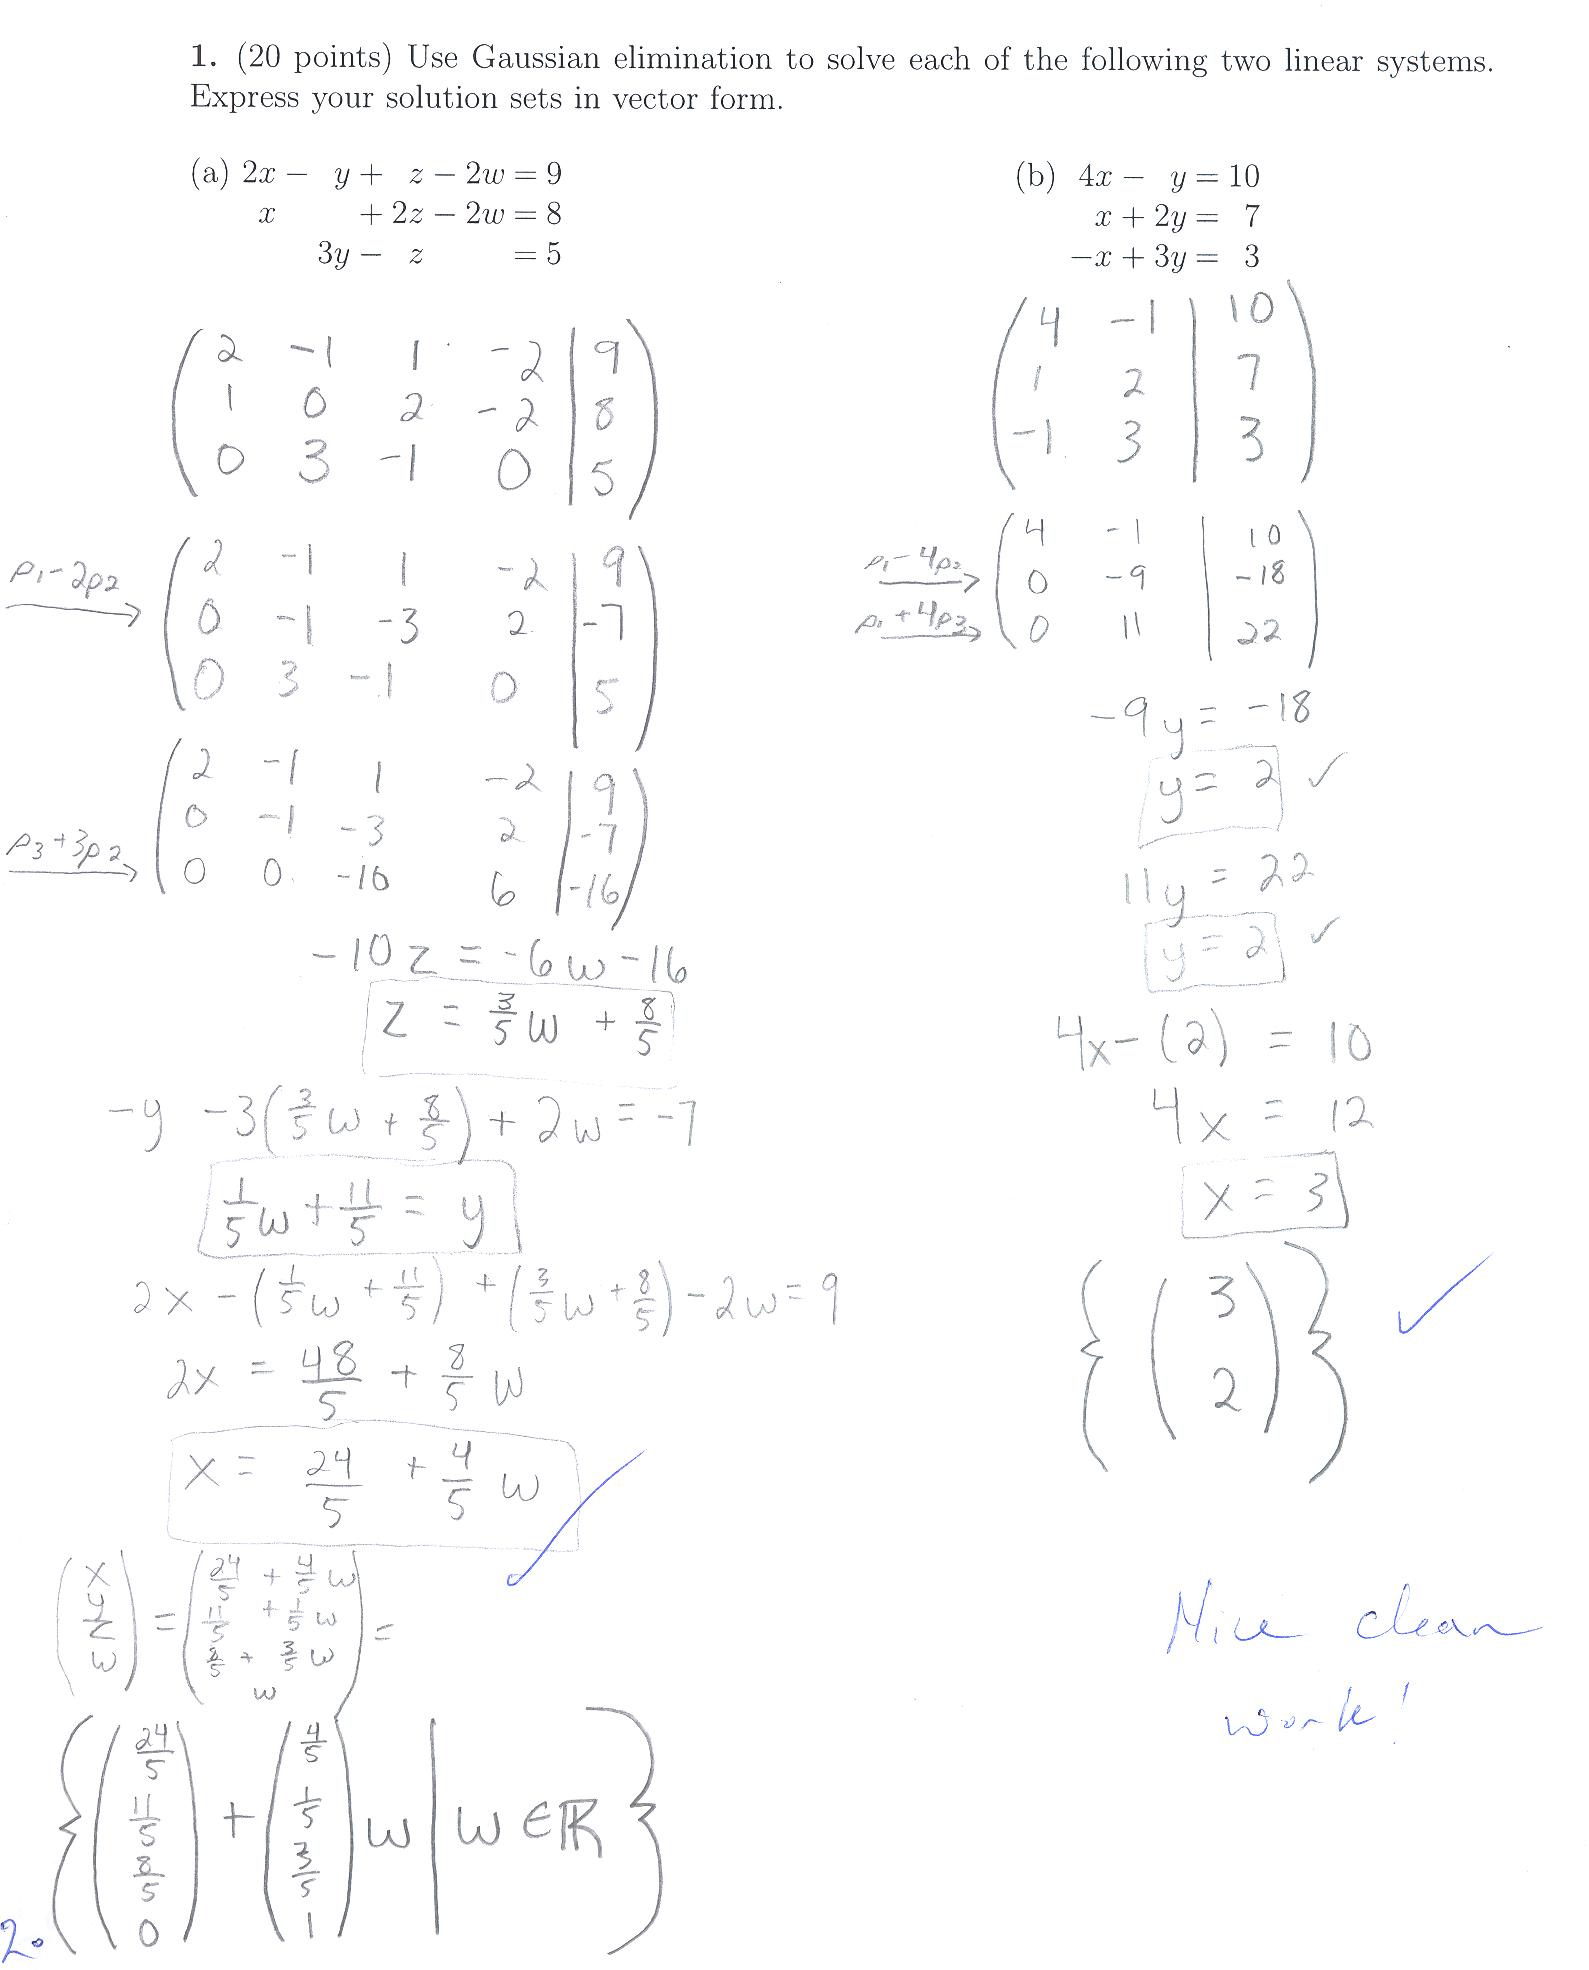 1. (20 points) Use Gaussian elimination to solve each of the following two linear systems.
Express your solution sets in vector form.
(a) 2x − y + z − 2w = 9
x + 2z − 2w = 8
3y − z = 5
( 2 -1 1 -2 | 9 )
( 1 0 2 -2 | 8 )
( 0 3 -1 0 | 5 )
ρ1-2ρ2 →
( 2 -1 1 -2 | 9 )
( 0 -1 -3 2 | -7 )
( 0 3 -1 0 | 5 )
ρ3+3ρ2 →
( 2 -1 1 -2 | 9 )
( 0 -1 -3 2 | -7 )
( 0 0 -10 6 | -16 )
-10z = -6w-16
z = 3/5 w + 8/5
-y -3(3/5 w + 8/5) + 2w = -7
1/5 w + 11/5 = y
2x - (1/5 w + 11/5) + (3/5 w + 8/5) - 2w = 9
2x = 48/5 + 8/5 w
x = 24/5 + 4/5 w
✓
( x ) = ( 24/5 + 4/5 w ) =
( y ) ( 11/5 + 1/5 w )
( z ) ( 8/5 + 3/5 w )
( w ) ( w )
{ ( 24/5 ) + ( 4/5 ) w | w ∈ ℝ }
( 11/5 ) ( 1/5 )
( 8/5 ) ( 3/5 )
( 0 ) ( 1 )
20
(b) 4x − y = 10
x + 2y = 7
−x + 3y = 3
( 4 -1 | 10 )
( 1 2 | 7 )
( -1 3 | 3 )
ρ1-4ρ2 →
ρ1+4ρ3 →
( 4 -1 | 10 )
( 0 -9 | -18 )
( 0 11 | 22 )
-9y = -18
y = 2 ✓
11y = 22
y = 2 ✓
4x-(2) = 10
4x = 12
x = 3
{ ( 3 ) } ✓
( 2 )
Nice clean
work!